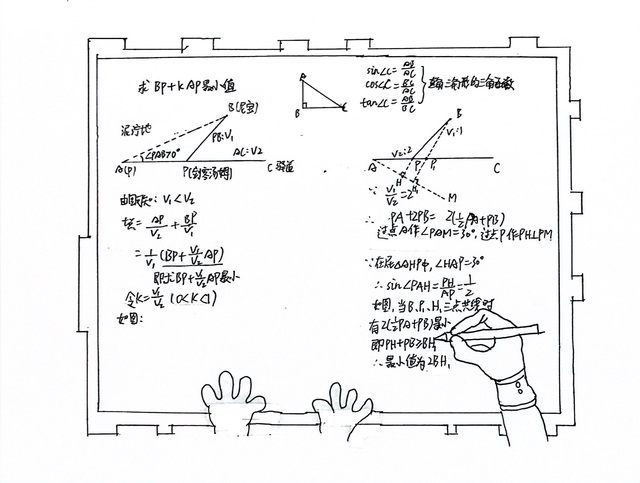 求 BP+kAP最小值
B(昆虫)
泥泞地
PB:V₁
∠PAB>0°
AC:V2
A(P)
P
C
由题意: V₁<V₂
t总=AP/V₂+BP/V₁
=1/V₁(BP+V₁/V₂AP)
即求BP+V₁/V₂AP最小
令K=V₁/V₂(0<K<1)
如图:
A
B
C
sin∠C=AB/AC
cos∠C=BC/AC
tan∠C=AB/BC
直角三角形的三角函数
B
V₁:1
V₂:2
A
P
P₁
C
H
H₁
M
∵
∴ PA+2PB=2(1/2PA+PB)
过点A作∠PAM=30°,过点P作PH⊥PM
∵在Rt△AHP中,∠HAP=30°
∴sin∠PAH=PH/AP=1/2
如图,当B、P、H、三点共线时
有2(1/2PA+PB)最小
即PH+PB≥BH₁
∴最小值为2BH₁